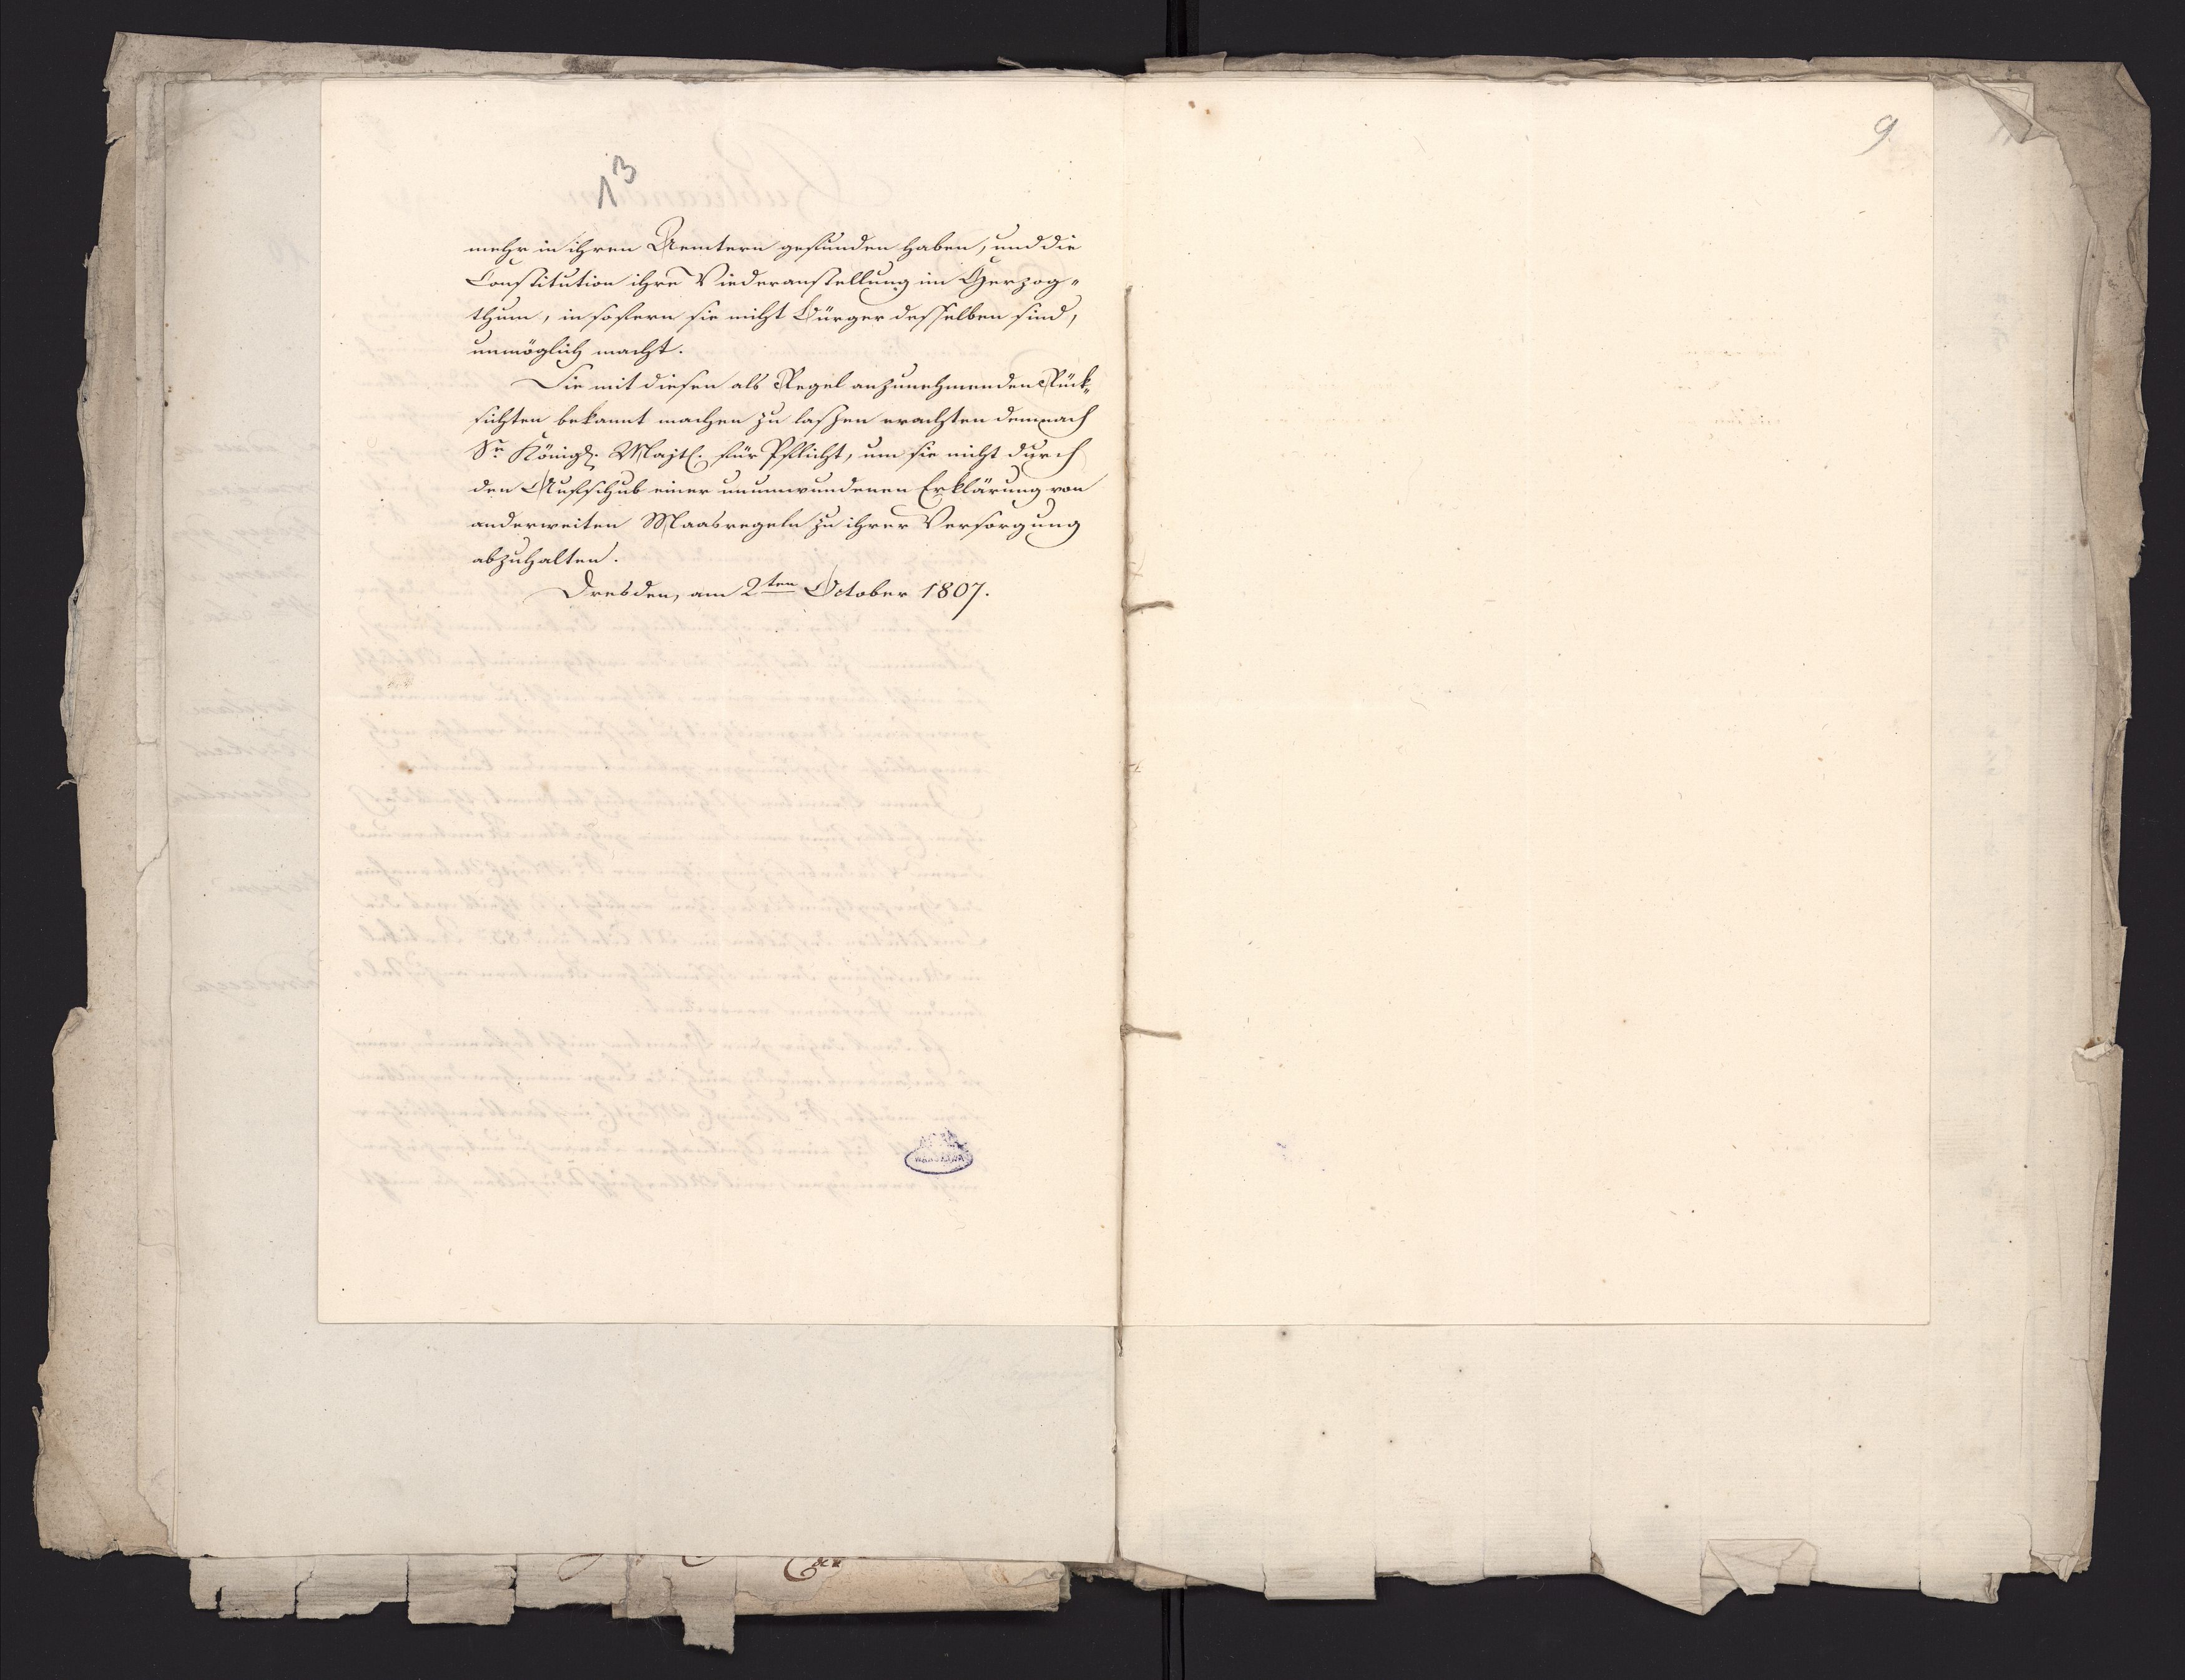 13
mehr in ihren Aemtern gefunden haben, und die
Constitution ihre Wiederanstellung im Herzog„
thum, in sofern sie nicht Bürger desselben sind,
unmöglich macht.
Sie mit diesen als Regel anzunehmenden Rück„
sichten bekannt machen zu laßen erachten demnach
Sr. Königl. Majtl. für Pflicht, um sie nicht durch
den Aufschub einer unumwundenen Erklärung von
anderweiten Maasregeln zu ihrer Versorgung
abzuhalten.
Dresden, am 2ten October 1807.
9